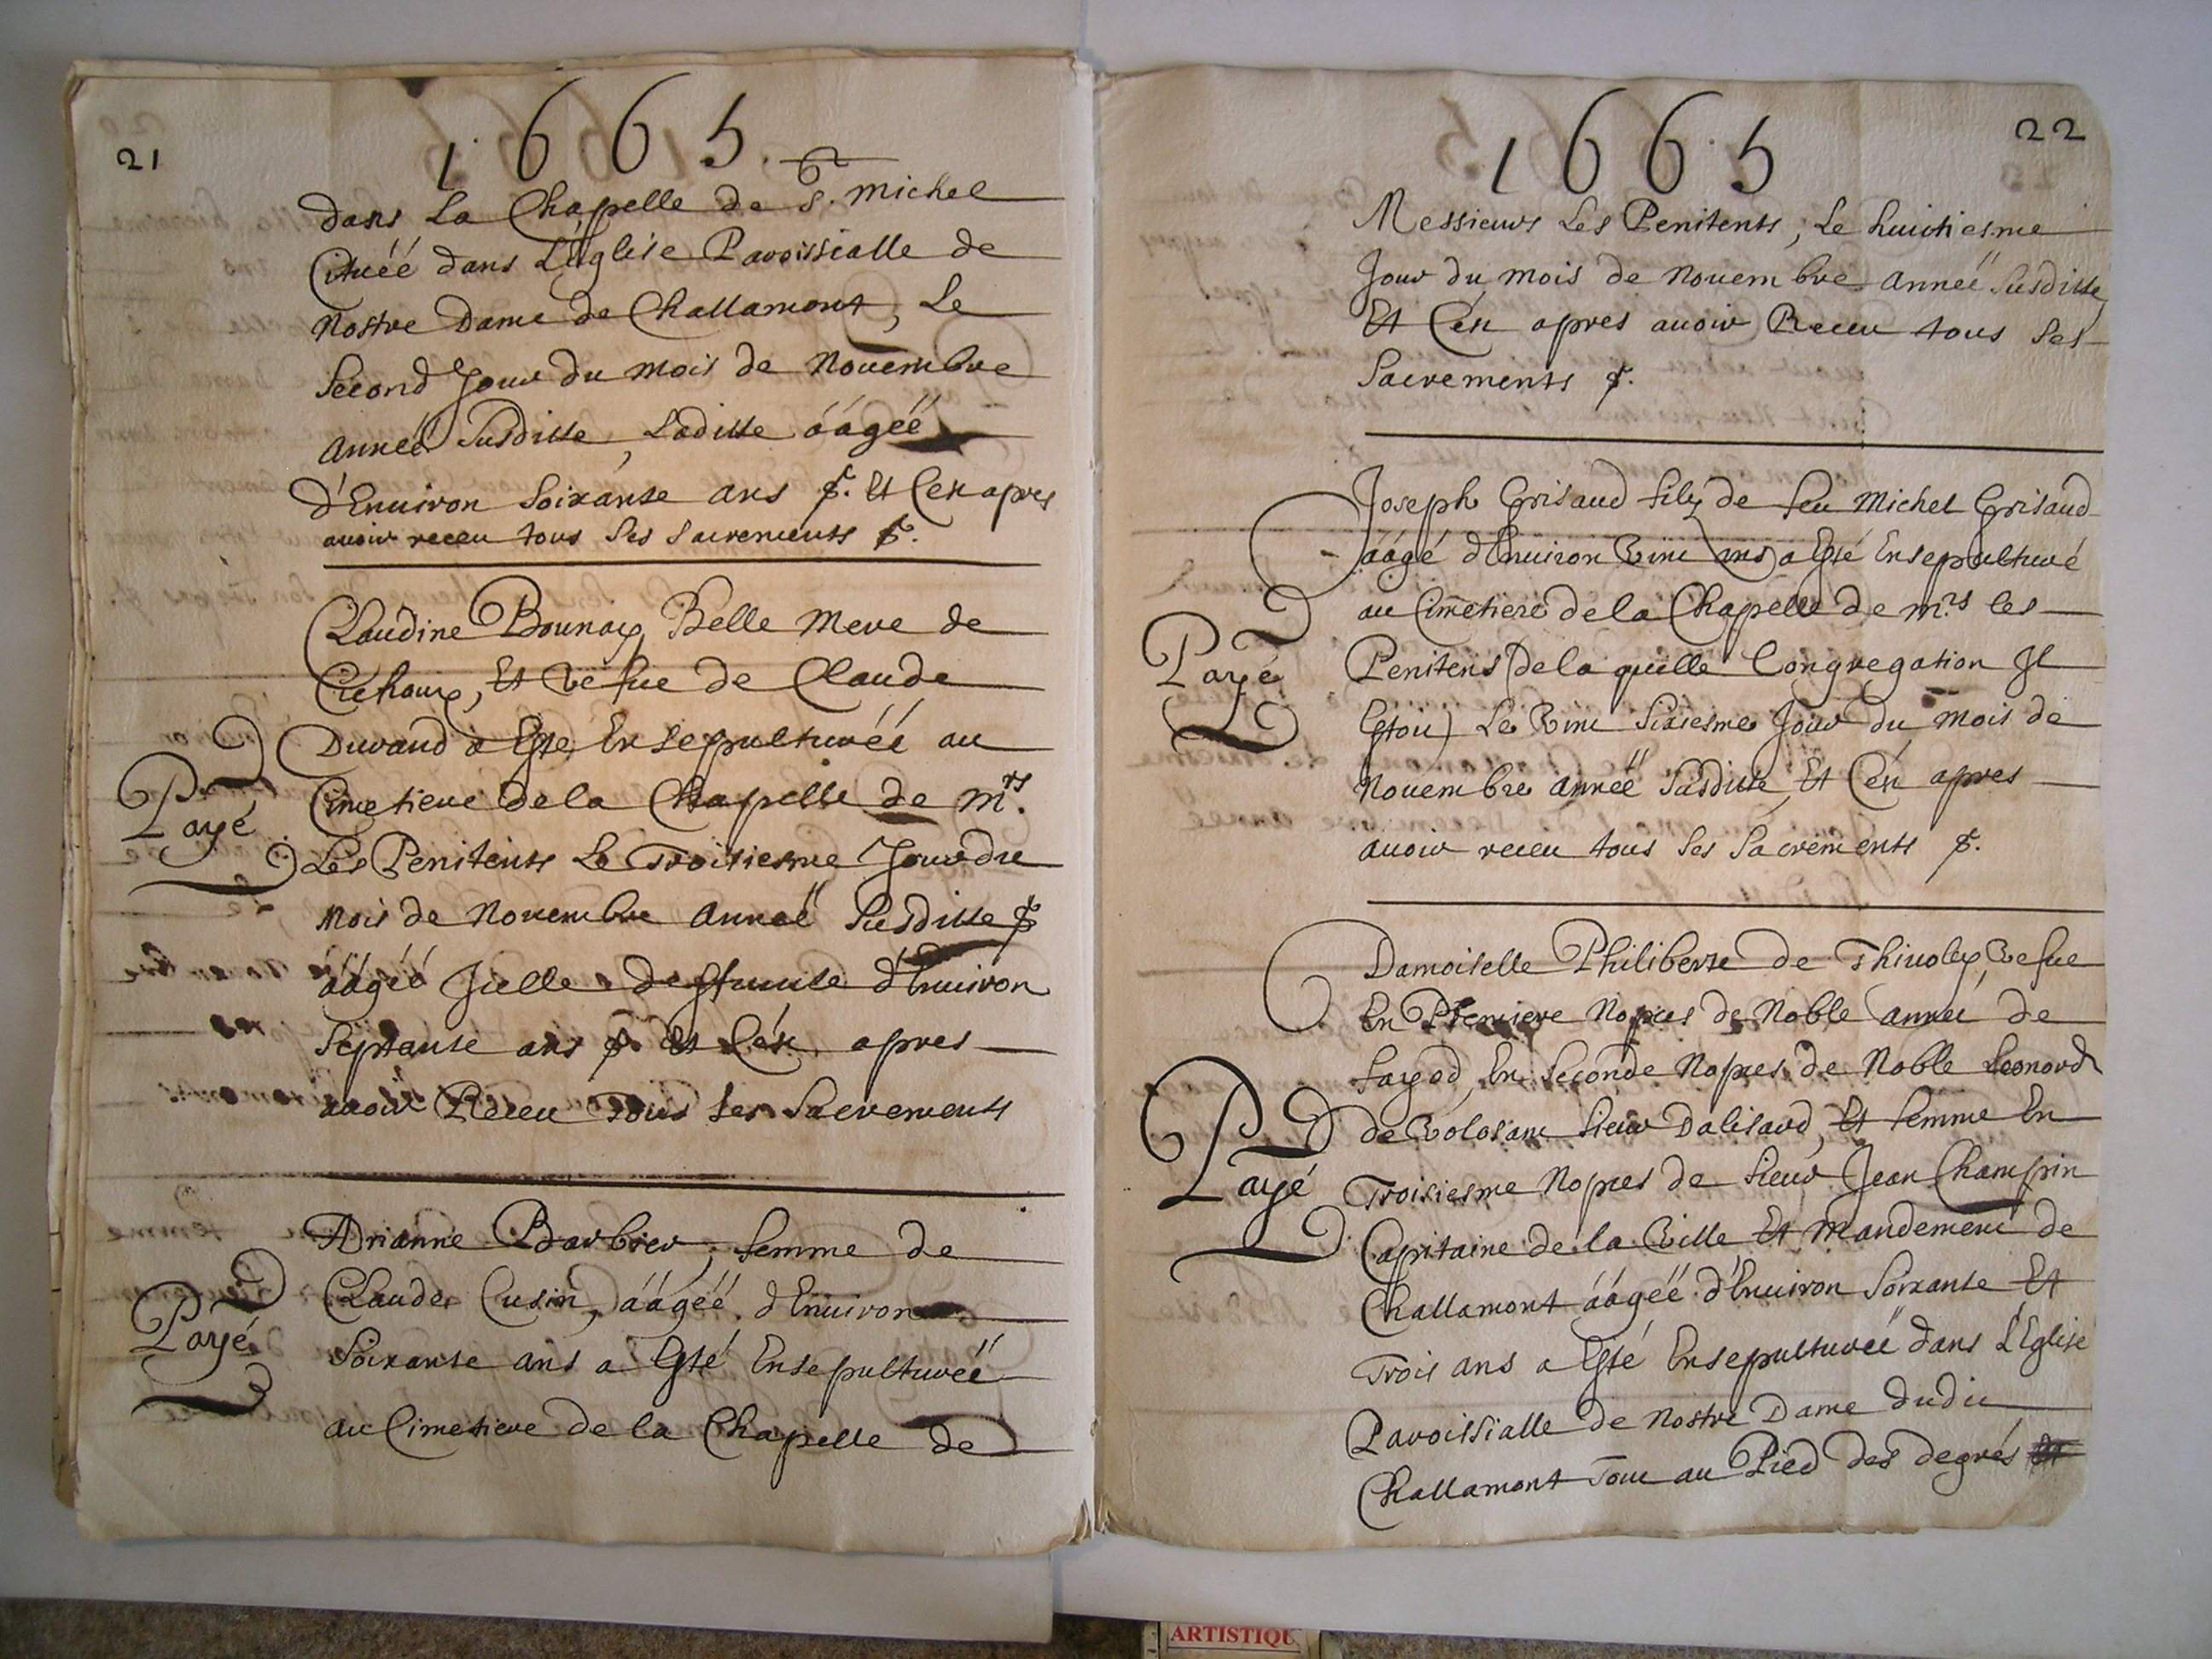 21
1665.
dans La Chapelle de S. Michel
Cituéé dans L'église Paroissialle de
Nostre Dame de Challamont, Le
Second Jour du mois de Nouembre
Année Susditte, Laditte ââgéé
d'Enuiron Soixante ans &. Et C'en apres
auoir receu tous Ses Sacrements &.
Claudine Bounay, Belle Mere de
Et Vefue de Claude
Durand a Esté Ensepulturéé au
Cimetiere de la Chapelle de Mrs.
Les Penitents Le Troisiesme Jour du
Mois de Nouembre Année Susditte &
ââgéé Jcelle deffunte d'Enuiron
Septante ans &. Et C'en apres
auoir Receu Tous Ses Sacrements
Payé
Arianne Barbier, femme de
Claude Cusin, ââgéé d'Enuiron
Soixante ans a Esté Ensepulturéé
au Cimetiere de la Chapelle de
Payé
22
1665
Messieurs Les Penitents, Le huictiesme
Jour du mois de Nouembre Année Susditte,
Et C'en apres auoir Receu tous Ses
Sacrements &.
Joseph Grisaud filz de feu Michel Grisaud
ââgé d'Enuiron Vint ans a Esté Ensepulturé
au Cimetiere de la Chapelle de Mrs. les
Penitens (de la quelle Congregation Jl
Estoit) Le Vint Sixiesme Jour du Mois de
Nouembre Année Susditte, Et C'en apres
auoir receu tous Ses Sacrements &.
Payé
Damoiselle Philiberte de Thiuoley, Vefue
En Premiere Nopces de Noble Anné de
En Seconde Nopces de Noble Leonord
de Sieur Dalisard, Et femme En
Troisiesme Nopces de Sieur Jean Champin
Capitaine de la Ville Et Mandement de
Challamont ââgéé d'Enuiron Soixante Et
Trois ans a Esté Ensepulturéé dans L'Eglise
Paroissialle de Nostre Dame dudit
Challamont Tout au Pied des degrés
Payé
ARTISTIQU